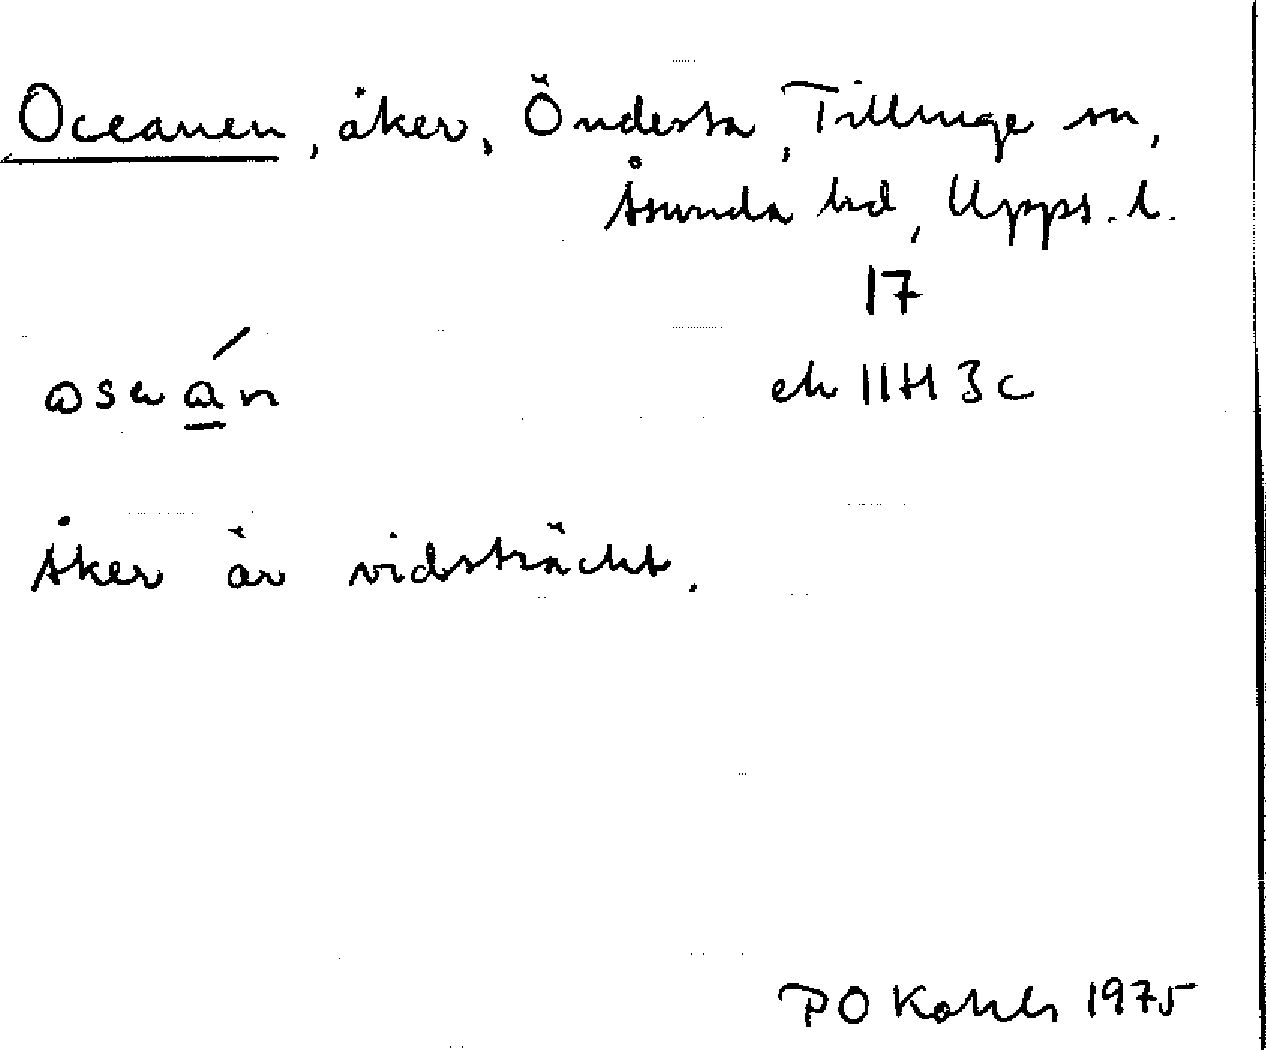 Oceanen, åker, Öndersta, Tillinge sn,
Åsunda hd, Upps. l.
17
ek 11H 3c
Åker är vidsträckt.
P O 1975